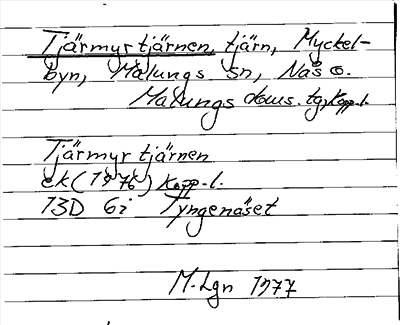 Tjärmyrtjärnen, tjärn, Myckel-
byn, Malungs sn, Nås o.
Malungs doms. tg, Kopp.l.
Tjärmyrtjärnen
ek (1976) Kopp-l.
13D 6i Tyngenäset
M.Lgn 1977